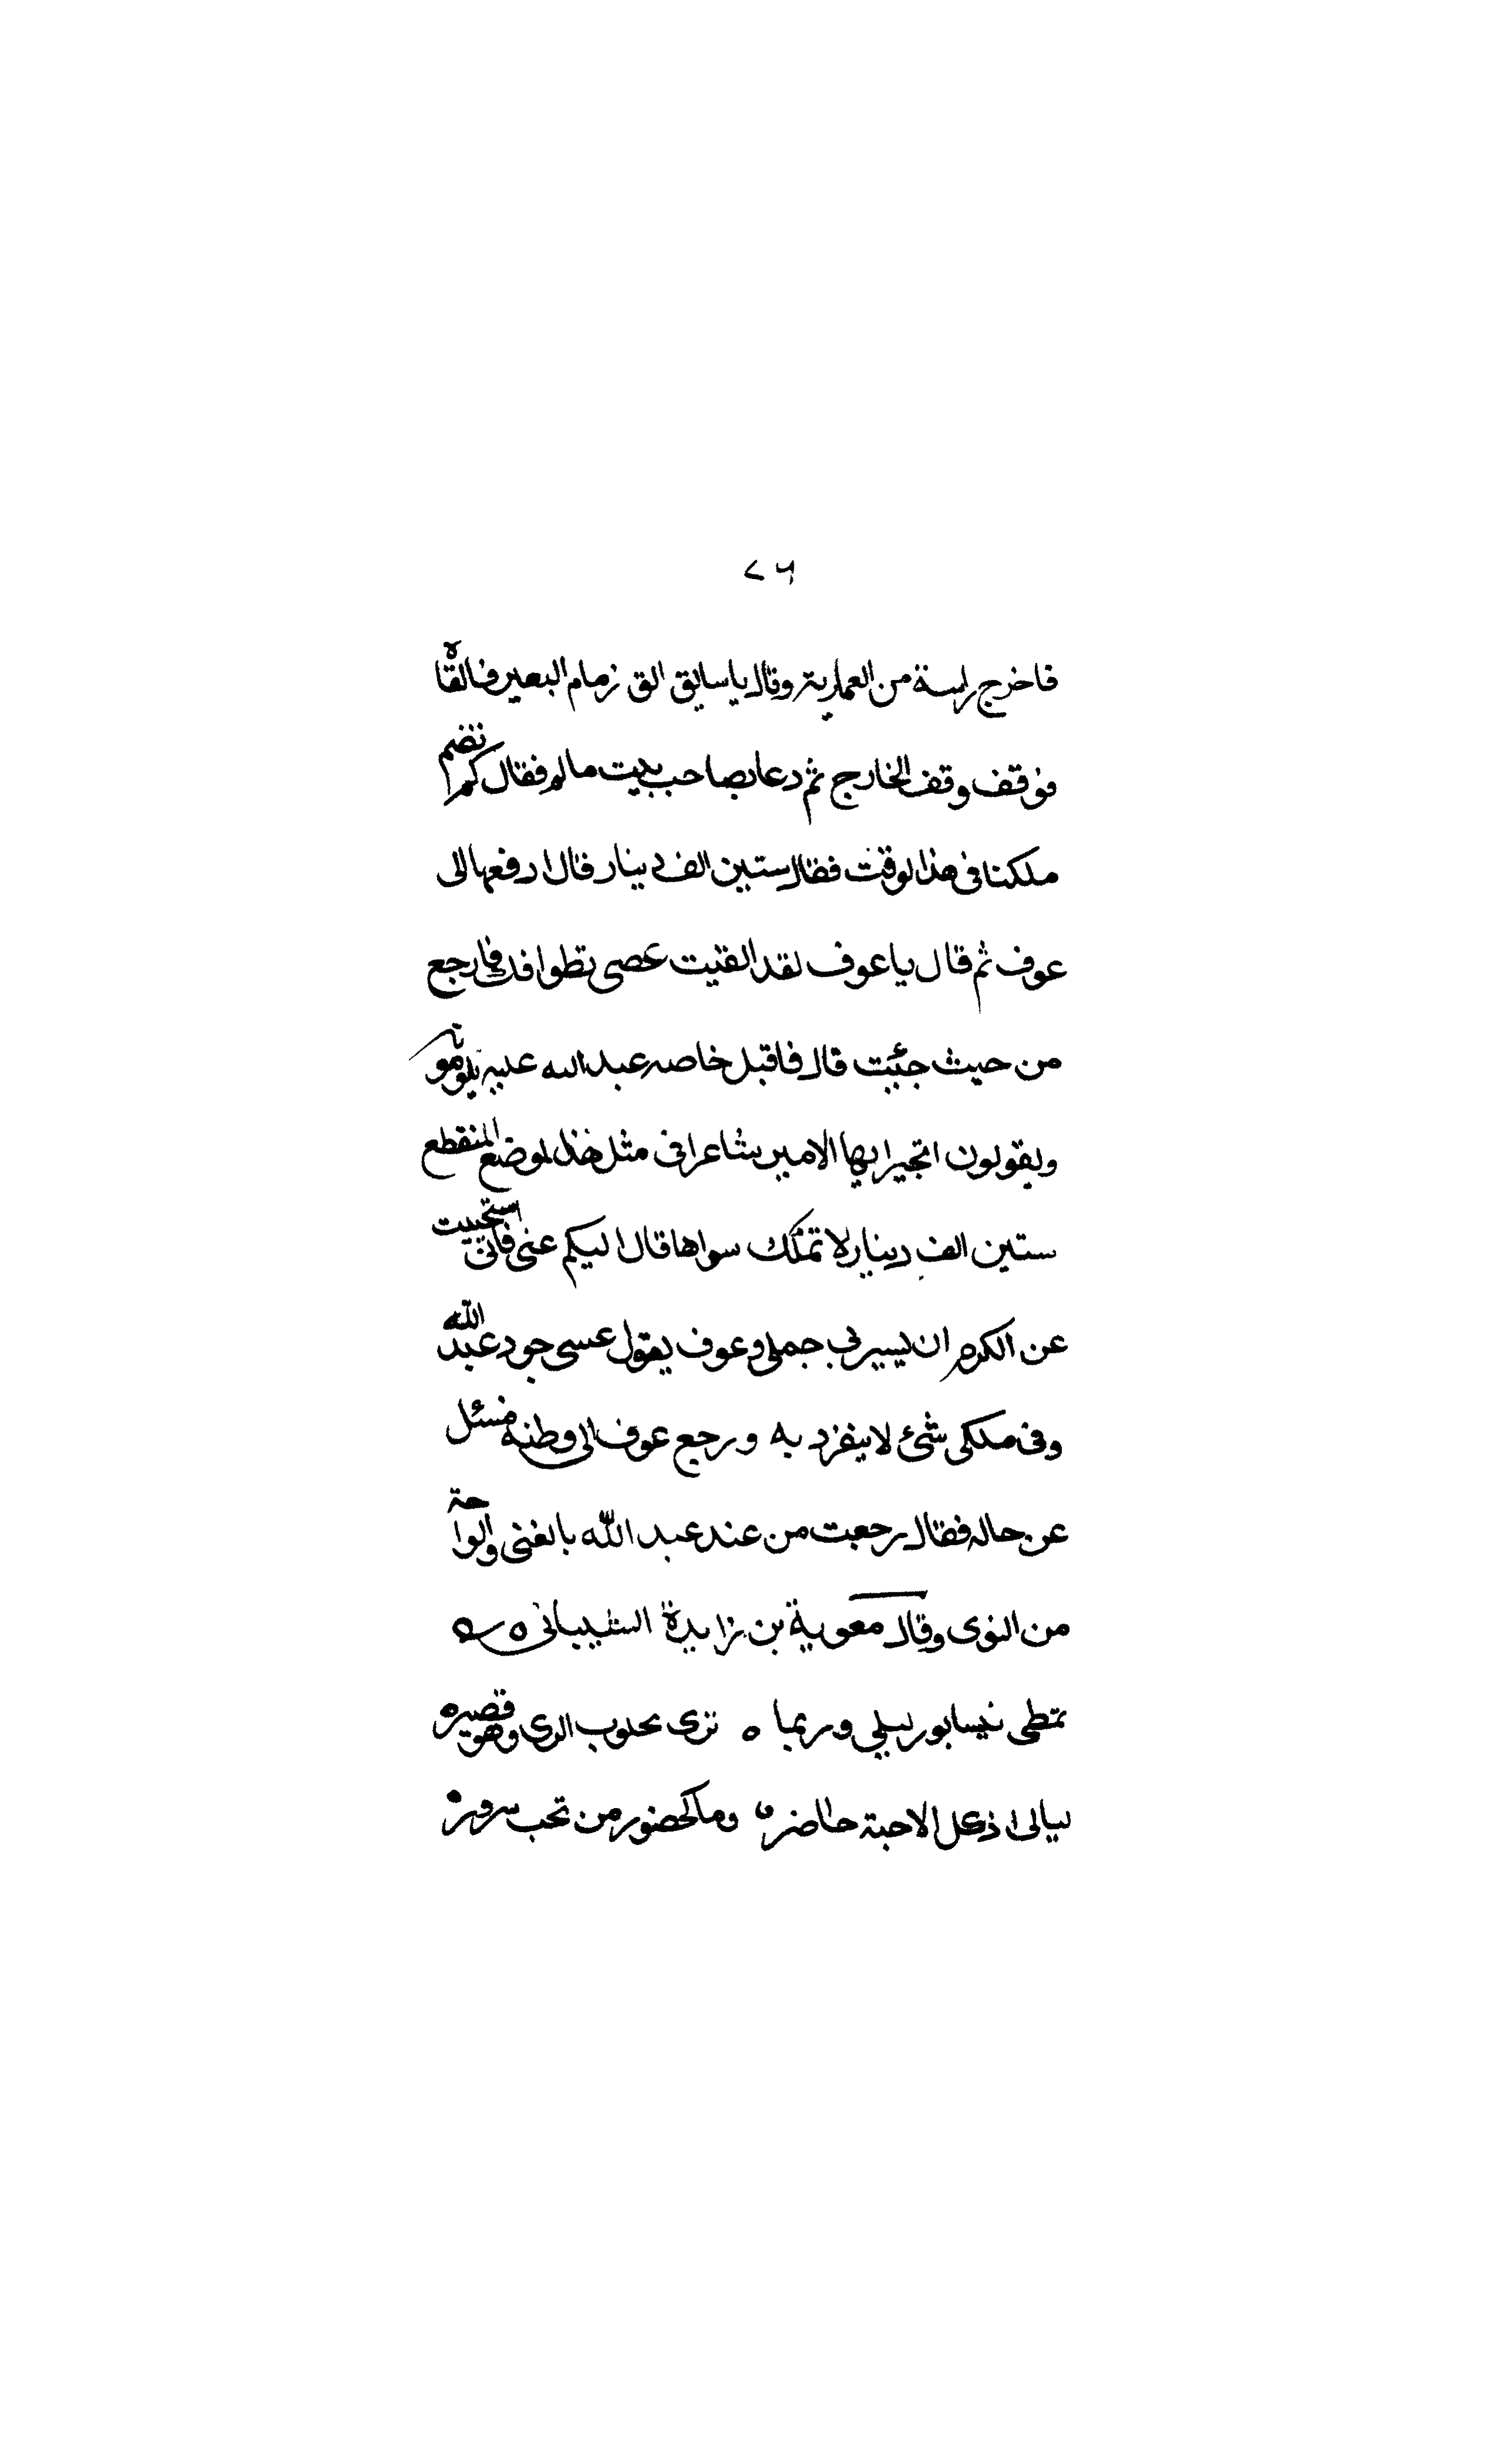 ٧٦
فاخرج راسة من العمارية وقال يا سايق الق زمام البعير فالقاه
فوقف وقف الخارج ثم دعا بصاحب بيت ماله فقال كم تضم
ملكنا في هذا لوقت فقال ستين الف دينار قال ادفعها الى
عوف ثم قال يا عوف لقد القيت عصى تطوافك فارجع
من حيث جئت قال فاقبل خاصه عبد الله عليه يلومونه
ويقولون اتجيز ايها الامير شاعرا في مثل هذا لموضع المنقطع
ستين الف دينار لا تملك سواها قال اليكم عني فاني استحييت
عن الكرم ان يسير بي جملي وعوف يقول عسى جود عبد الله
وفي ملكي شئ لا ينفرد به ورجع عوف الى وطنه فسئل
عن حاله فقال رجعت من عند عبد الله بالغنى والواحة
من النوى وقال معوية بن زايدة الشيباني ه
تمطى نيسابور ليلي وربما ه ترى بجلوب الري وهو قصيره
ليالى اذ كل الاحبة حاضره وما كحضور من تحب سرور ه